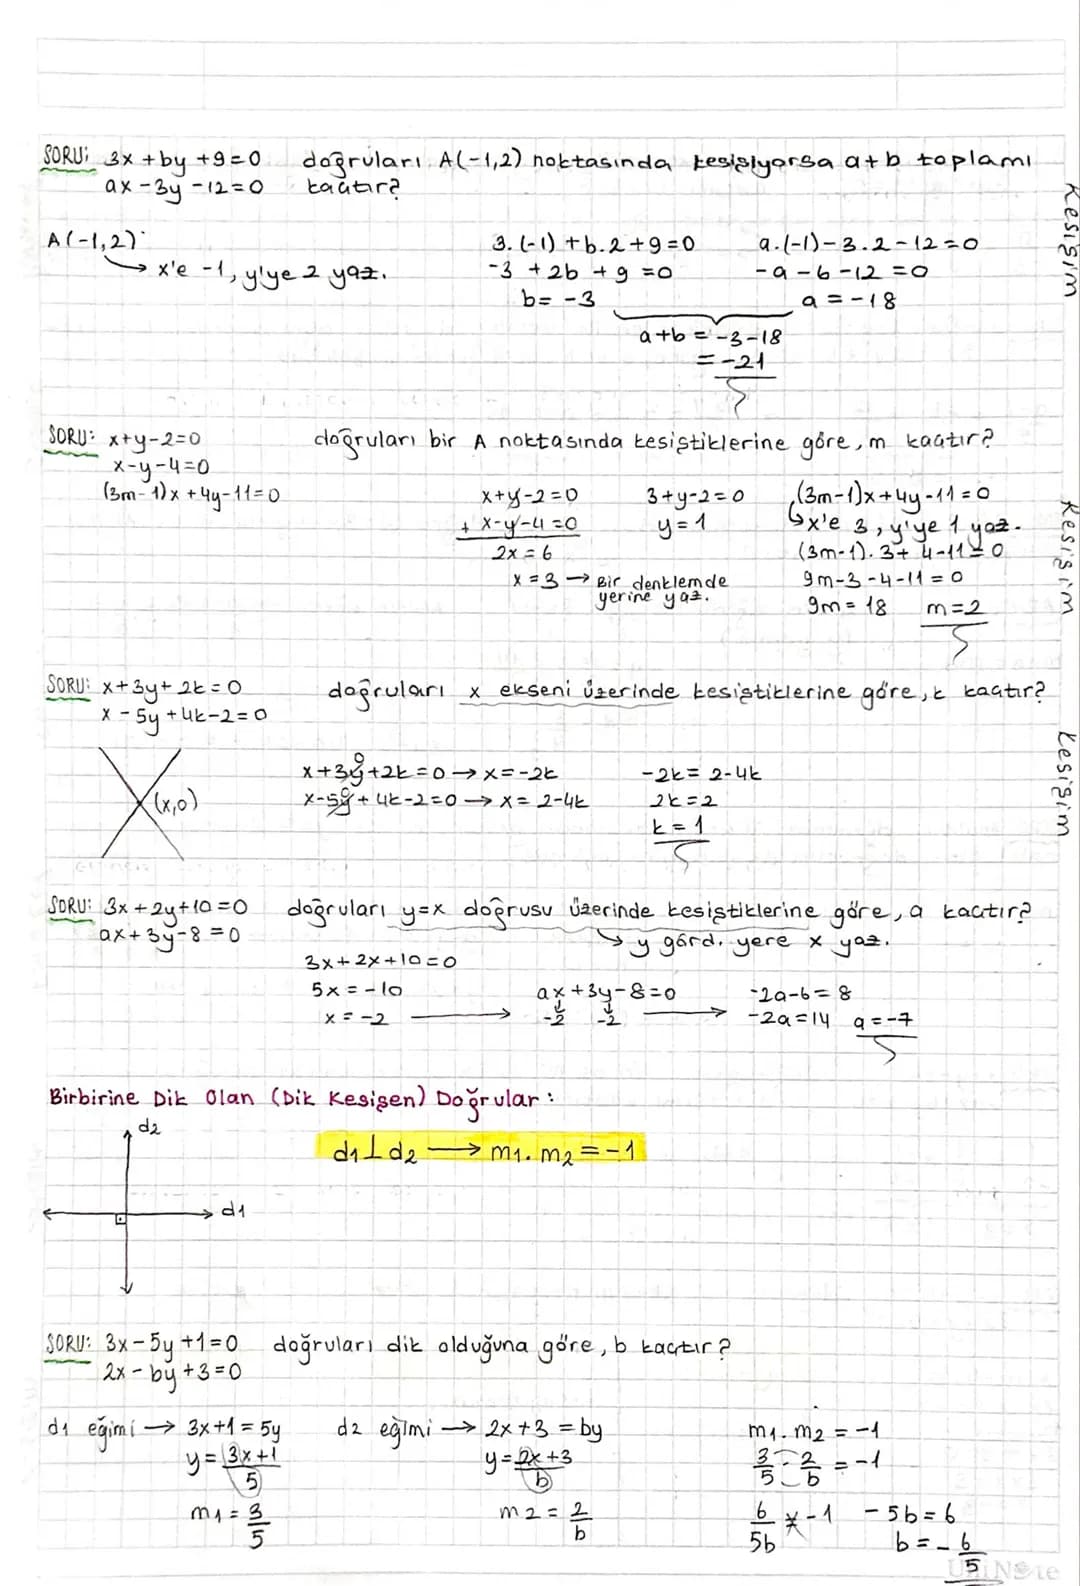 SORU: 3x + by + 9 = 0 doğruları A(-1,2) noktasında kesişiyorsa a+b toplamı
ax - 3y - 12 = 0 kaçtır?
Kesişim
A(-1,2)
→ x'e -1, y'ye 2 yaz.
3.(-1) + b.2 + 9 = 0
-3 + 2b + 9 = 0
b = -3
a.(-1) - 3.2 - 12 = 0
-a - 6 - 12 = 0
a = -18
a+b = -3 - 18
= -21
SORU: x+y-2=0 doğruları bir A noktasında kesiştiklerine göre, m kaçtır?
x-y-4=0
(3m-1)x + 4y - 11 = 0
Kesişim
x+y-2=0
+ x-y-4=0
2x = 6
x = 3 → Bir denklemde
yerine yaz.
3+y-2=0
y = 1
(3m-1)x+4y-11=0
↳ x'e 3, y'ye 1 yaz.
(3m-1).3 + 4-11=0
9m-3-4-11=0
9m = 18 m=2
SORU: x+3y+2k=0 doğruları x ekseni üzerinde kesiştiklerine göre, k kaçtır?
x - 5y + 4k - 2 = 0
kesişim
(x,0)
0
x+3y+2k=0 → x=-2k
x-5y+4k-2=0 → x = 2-4k
-2k = 2-4k
2k=2
k = 1
SORU: 3x+2y+10=0 doğruları y=x doğrusu üzerinde kesiştiklerine göre, a kaçtır?
ax+3y-8=0
↳ y görd. yere x yaz.
3x+2x+10=0
5x = -10
x = -2 →
ax+3y-8=0
↓ ↓
-2 -2 →
-2a-6=8
-2a=14 a=-7
Birbirine Dik Olan (Dik Kesişen) Doğrular:
d2
d1
d1 ⊥ d2 → m1.m2 = -1
SORU: 3x-5y+1=0 doğruları dik olduğuna göre, b kaçtır?
2x - by + 3 = 0
d1 eğimi → 3x+1 = 5y
y = 3x+1
5
m1 = 3
5
d2 eğimi → 2x+3 = by
y = 2x+3
b
m2 = 2
b
m1.m2 = -1
3/5 . 2/b = -1
6
5b
-1
-5b = 6
b = - 6
5
UniNote